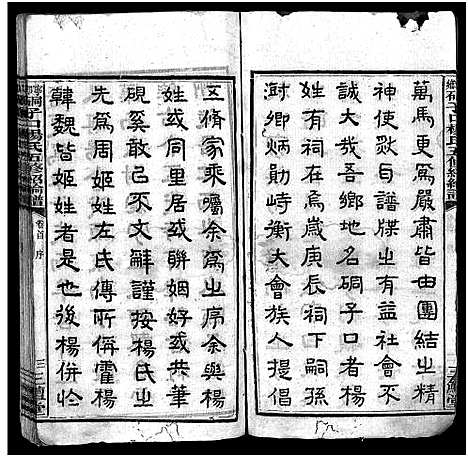 萬馬更爲嚴肅皆由團結㞢精
神使然自譜牒㞢有益社會不
誠大哉吾鄉地名硐子口者楊
姓有祠在焉歲庚辰祠下嗣孫
澍卿炳勛峙衡大會族人提倡
文脩家乘囑余爲㞢序余與楊
姓或同里居或聯姻好或共筆
硯奚敢㠯不文辭謹按楊氏㞢
先爲周姬姓左氏傳所偁霍楊
韓魏皆姬姓者是也後楊併於
卷首 序
三
三鱣堂